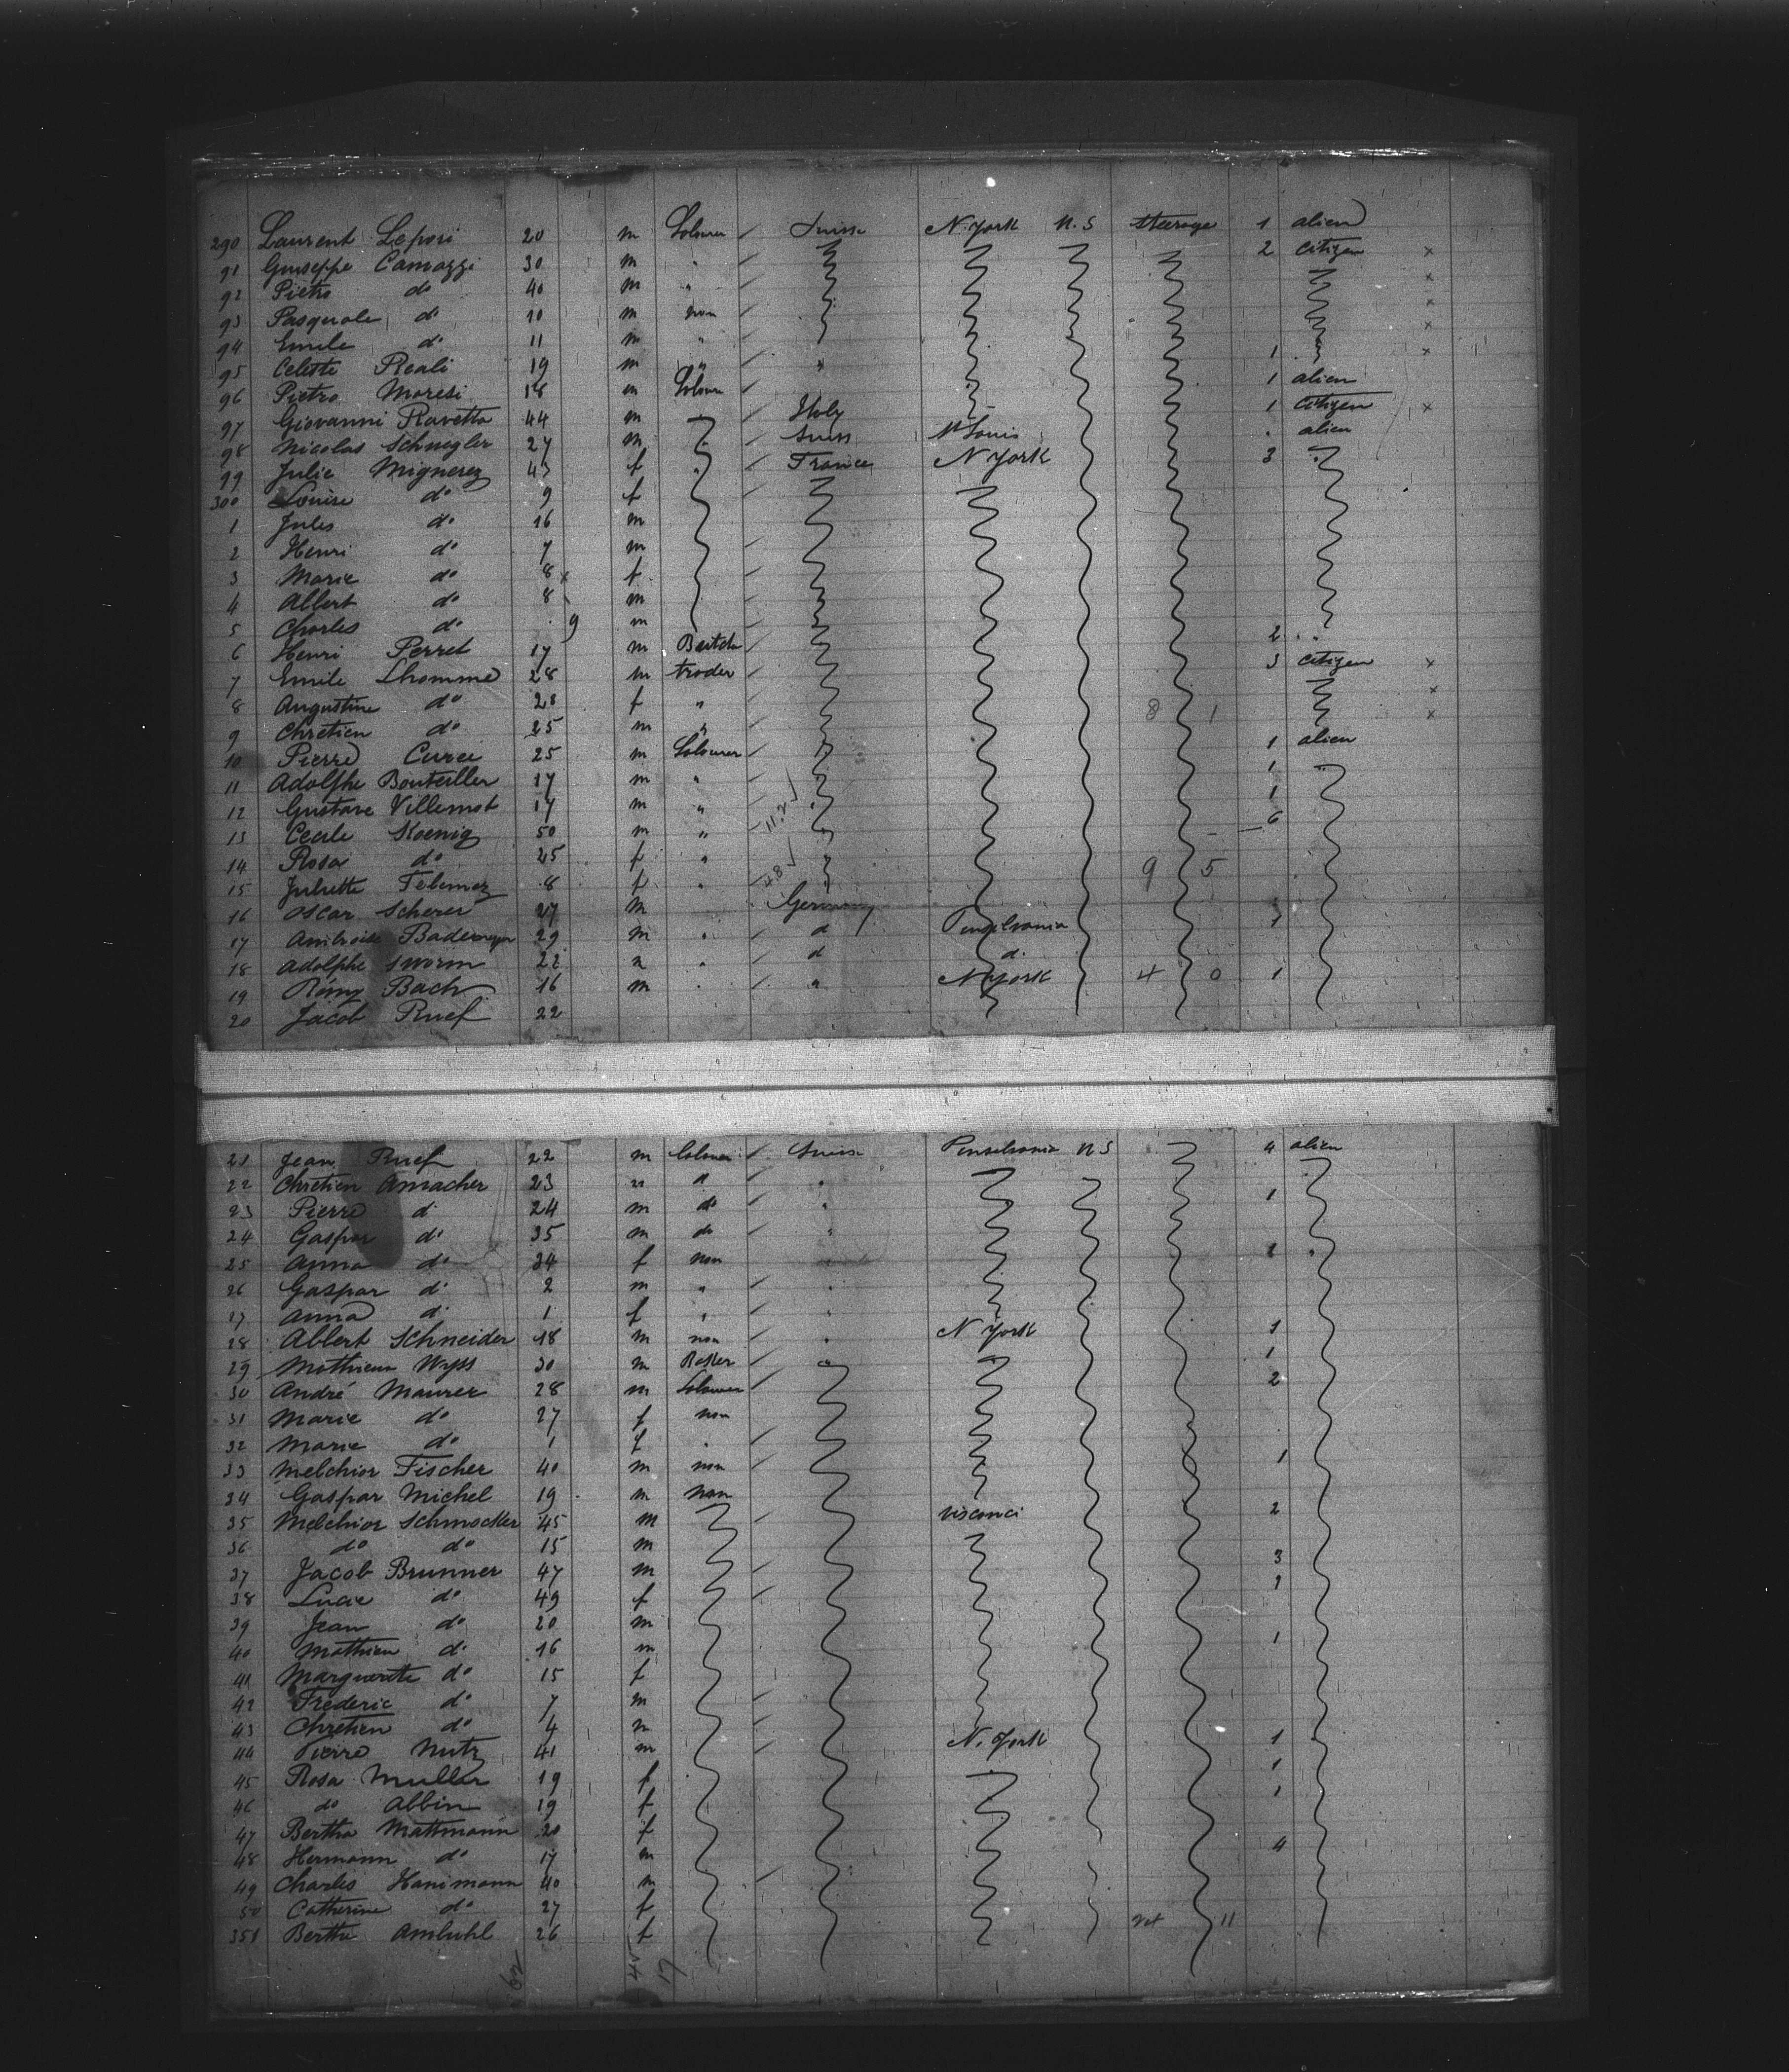 290 Laurent Lepori 20 m Labourer Suisse N. York U.S steerage 1 alien
91 Giuseppe Camozzi 30 m " 2 citizen x
92 Pietro do 40 m " x
93 Pasquale do 10 m non x
94 Emile do 11 m " x
95 Celeste Reali 19 m " " 1 x
96 Pietro Moresi 18 m Labour 1 alien
97 Giovanni Ravetta 44 m Italy 1 citizen x
98 Nicolas Schnegler 27 m Suiss St Louis alien
99 Julie Mignerez 43 f France N York 3
300 Louise do 9 f
1 Jules do 16 m
2 Henri do 7 m
3 Marie do 8 x f
4 Albert do 8 m
5 Charles do 9 m
6 Henri Perret 17 m Butch 2
7 Emile Lhomme 28 m trader 3 citizen x
8 Augustine do 28 f " 8 1 x
9 Chretien do 25 m " x
10 Pierre 25 m Labourer 1 alien
11 Adolphe Bouteiller 17 m " 1
12 Gustave Villemot 17 m " 1
13 Cecile Koenig 50 m " 6
14 Rosa do 25 f " 9 5
15 Juliette 8 f "
16 Oscar Scherer 27 m Germany
17 29 m " d Pensilvania 1
18 Adolphe Sworm 22 " d d.
19 Rémy Bach 16 m " N York 4 0 1
20 Jacob Ruef 22
21 Jean Ruef 22 m labourer Suisse Pensilvania U S 4 alien
22 Chretien Amacher 23 m d " 1
23 Pierre d 24 m do "
24 Gaspar do 35 m do "
25 Anna do 34 f non
26 Gaspar d 2 m "
27 Anna d 1 f "
28 Albert Schneider 18 m non " N York 1
29 Mathieu Wyss 30 m " 1
30 André Maurer 28 m Labourer 2
31 Marie do 27 f non
32 Marie do 1 f "
33 Melchior Fischer 40 m non 1
34 Gaspar Michel 19 m non
35 Melchior Schmocker 45 m visconci 2
36 do do 15 m
37 Jacob Brunner 47 m 3
38 Lucie do 49 f 1
39 Jean do 20 m
40 Mathieu d 16 m 1
41 Marguerite do 15 f
42 Frederic do 7 m
43 Chretien do 4 m
44 Pierre Mutz 41 m N. York 1
45 Rosa Muller 19 f 1
46 do Albin 19 f 1
47 Bertha Mattmann 20 f
48 Hermann do 17 m 4
49 Charles Hanimann 40 m
50 Catherine do 27 f
351 Bertha Ambuhl 26 f 11
62 45 17